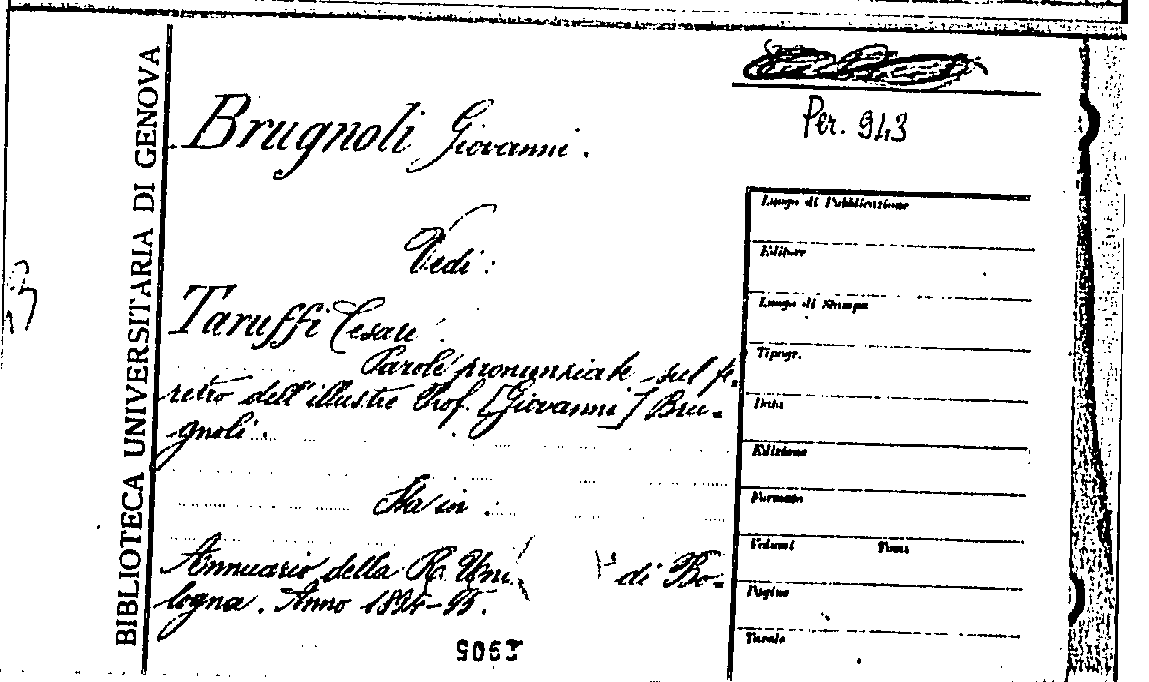 BIBLIOTECA UNIVERSITARIA DI GENOVA
Per. 943
Brugnoli Giovanni.
Vedi:
Taruffi Cesare.
Parole pronunziate sul fe-
retro dell'illustre Prof. [Giovanni] Bru-
gnoli.
Sta in:
Annuario della R. Uni di Bo-
logna. Anno 1894-95.
Luogo di Pubblicazione
Editore
Luogo di Stampa
Tipogr.
Data
Edizione
Formato
Volumi Tomi
Pagine
Tavole